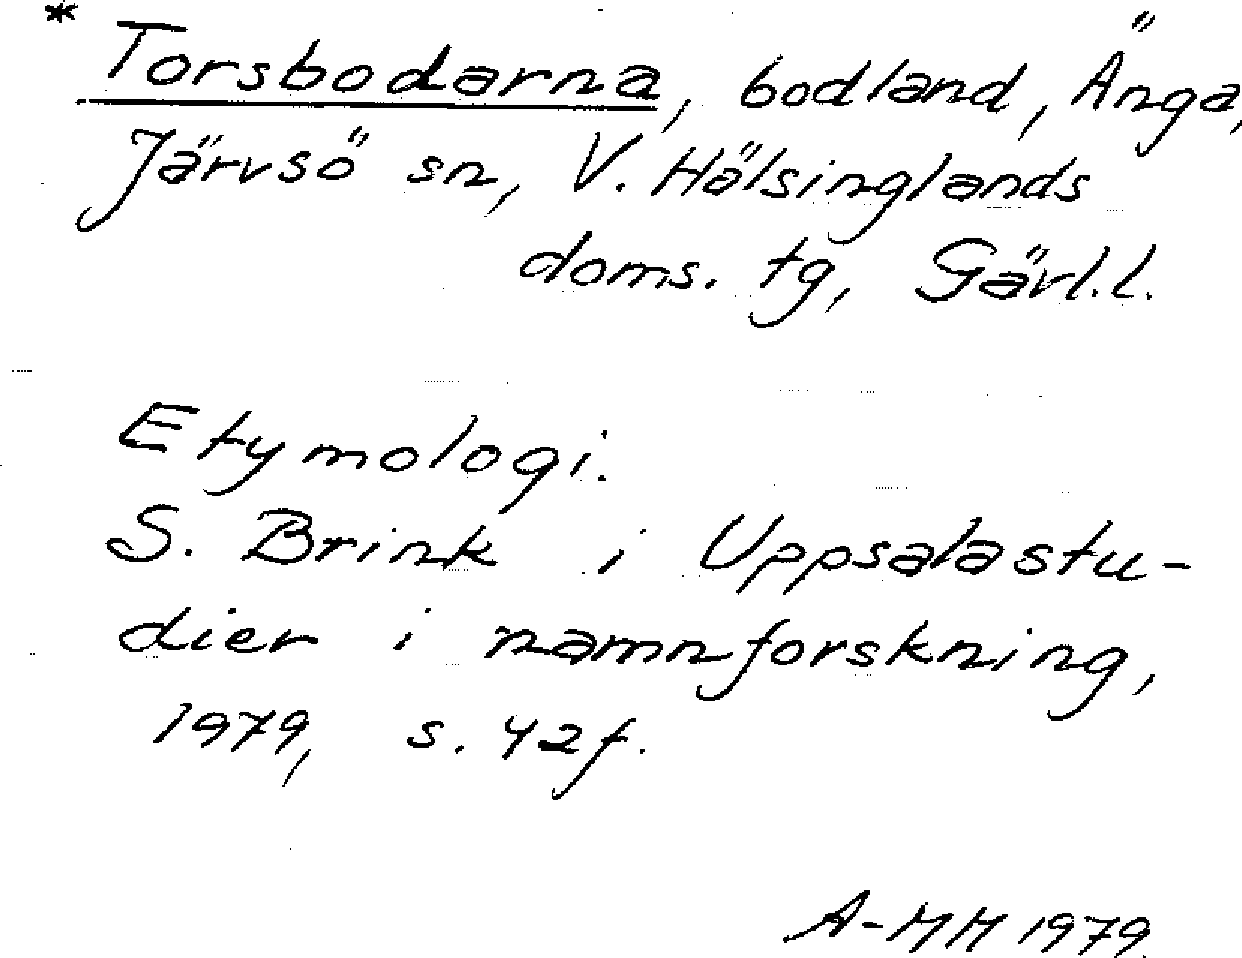 * Torsbodarna, bodland, Änga,
Järvsö sn, V. Hälsinglands
doms. tg, Gävl.l.
Etymologi.
S. Brink i Uppsalastu-
dier i namnforskning,
1979, s. 42f.
A-MM 1979.